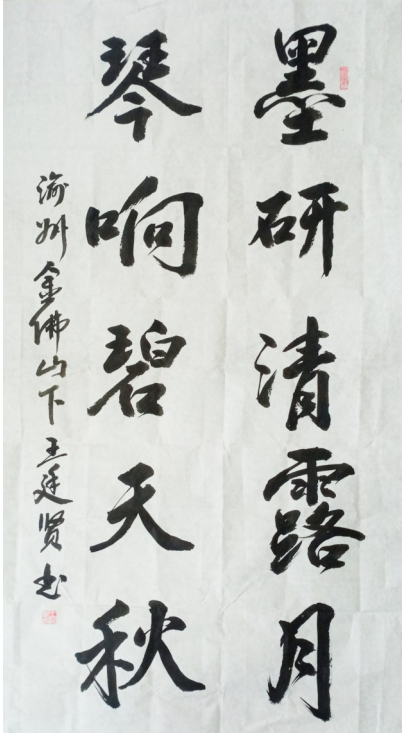 墨研清露月
琴响碧天秋
渝州金佛山下王廷贤书